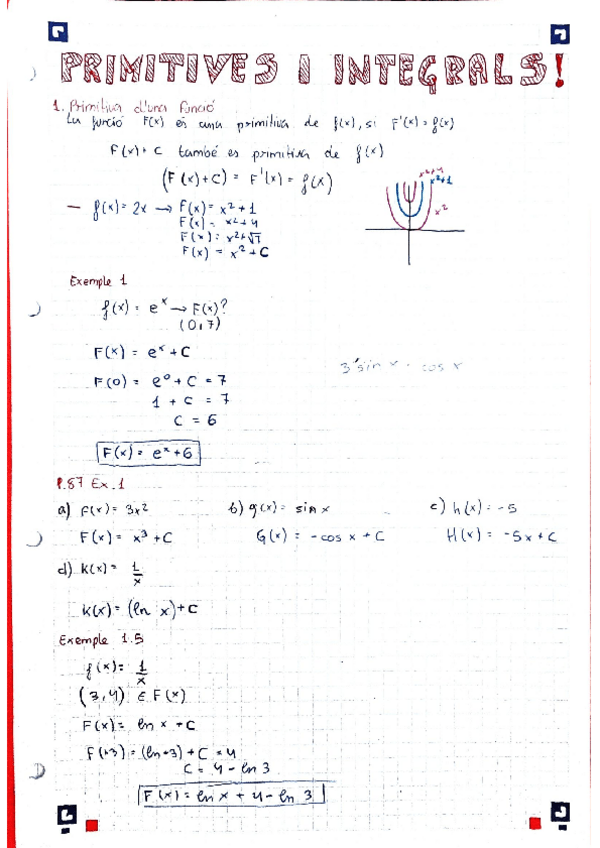 PRIMITIVES I INTEGRALS!
1. Primitiva d'una funció
La funció F(x) és una primitiva de f(x), si F'(x) = f(x)
F(x) + C també es primitiva de f(x)
(F(x)+C) = F'(x) = f(x)
x²+4
x²+1
x²
— f(x) = 2x → F(x) = x²+1
F(x) = x²+4
F(x) = x²+√7
F(x) = x²+C
Exemple 1
f(x) = eˣ → F(x)?
(0,7)
F(x) = eˣ + C
3 sin x · cos x
F(0) = e⁰ + C = 7
1 + C = 7
C = 6
F(x) = eˣ+6
P.87 Ex.1
a) F(x) = 3x² b) g(x) = sin x c) h(x) = -5
F(x) = x³ + C G(x) = -cos x + C H(x) = -5x + C
d) K(x) = 1/x
K(x) = (ln x) + C
Exemple 1.5
f(x) = 1/x
(3,4) ∈ F(x)
F(x) = ln x + C
F(+3) = (ln+3) + C = 4
C = 4 - ln 3
F(x) = ln x + 4 - ln 3